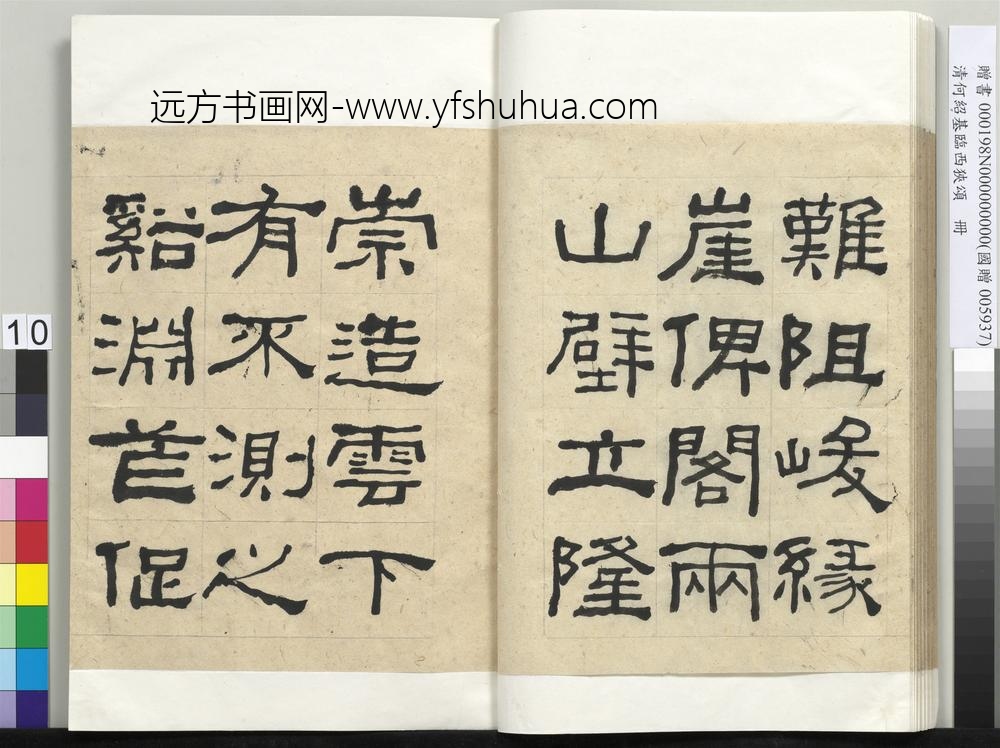 远方书画网-www.yfshuhua.com
贈書 000198N000000000(國贈 005937)
清何紹基臨西狹頌 冊
難阻峻緣
崖俾閣兩
山壁立隆
崇造雲下
有不測之
谿淵芒促
10